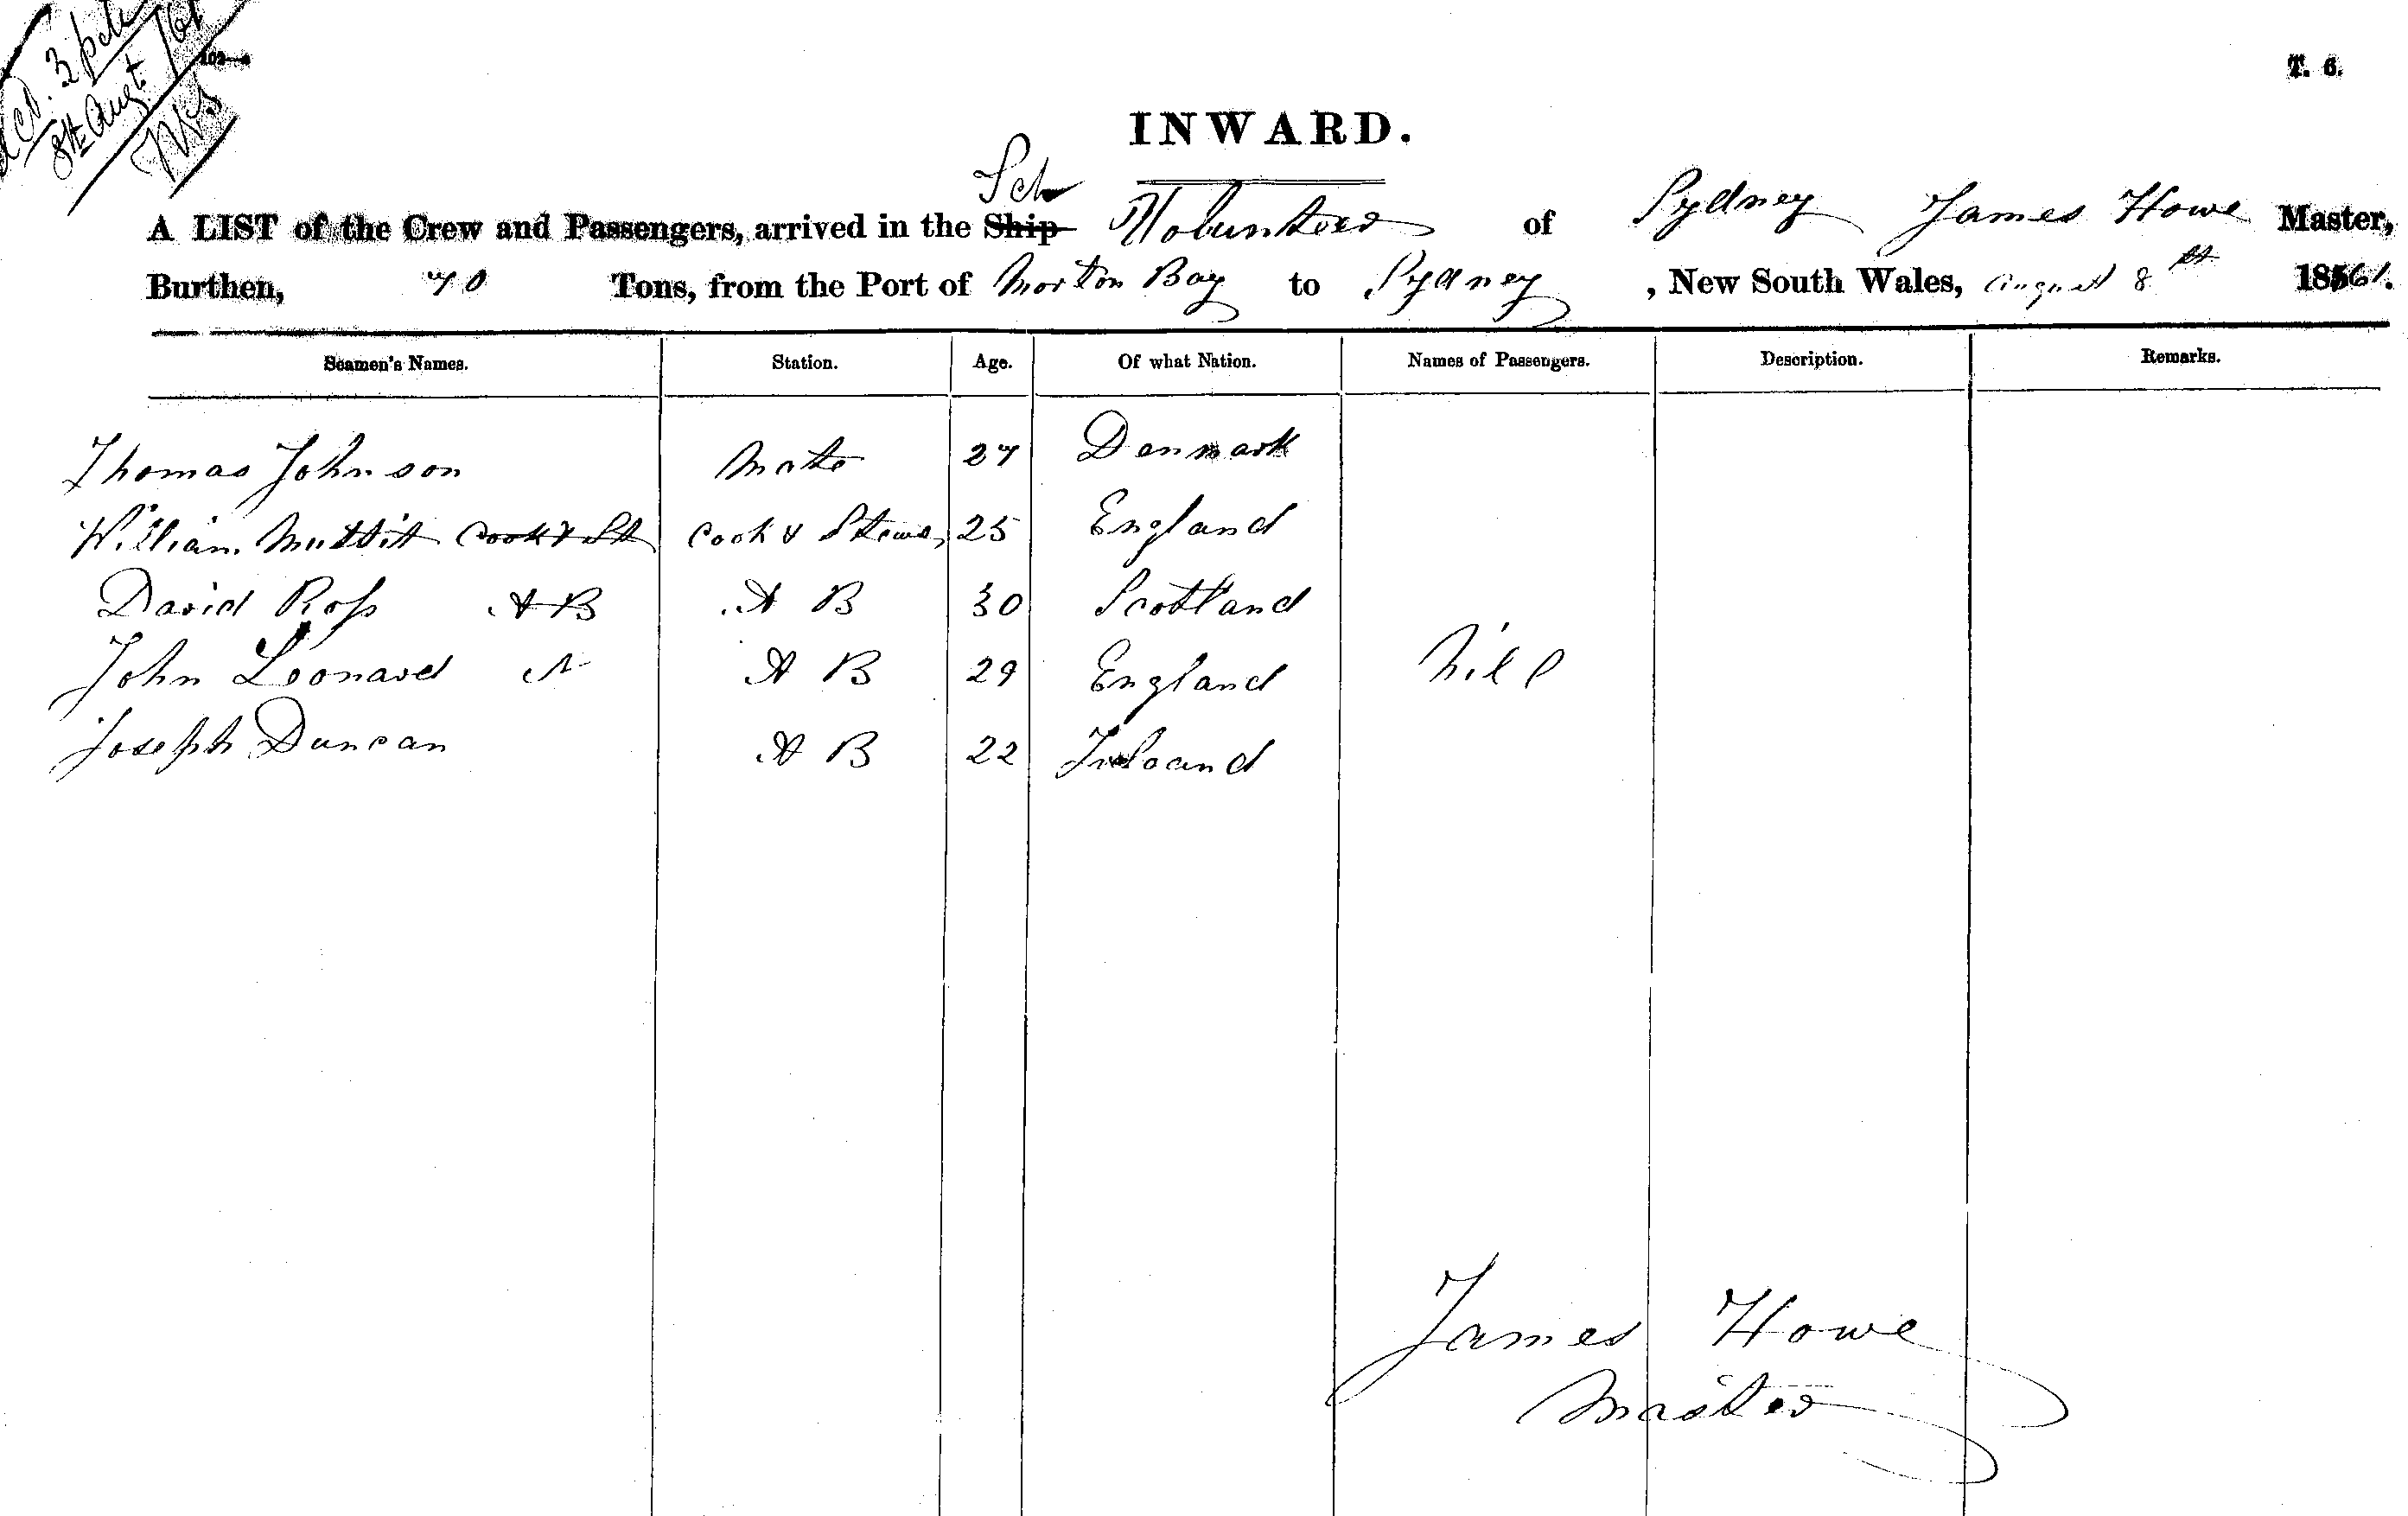 3 pck
8th Augt. /61
102—4
T. 6.
INWARD.
Sch
A LIST of the Crew and Passengers, arrived in the Ship Volunteer of Sydney James Howe Master,
Burthen, 70 Tons, from the Port of Morton Bay to Sydney, New South Wales, august 8th 1861.
Seamen's Names. Station. Age. Of what Nation. Names of Passengers. Description. Remarks.
Thomas Johnson Mate 27 Denmark
William Muttit Cook & St Cook & Stewd 25 England
David Ross A B A B 30 Scotland
John Leonard A B 29 England Nill
Joseph Duncan A B 22 Ireland
James Howe
Master